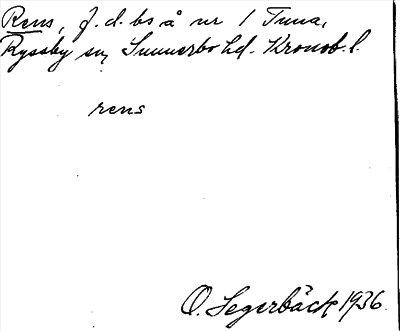 Rens, f.d. bs å nr 1 Tuna,
Ryssby sn, Sunnerbo hd. Kronob. l.
rens
O. Segerbäck 1936.